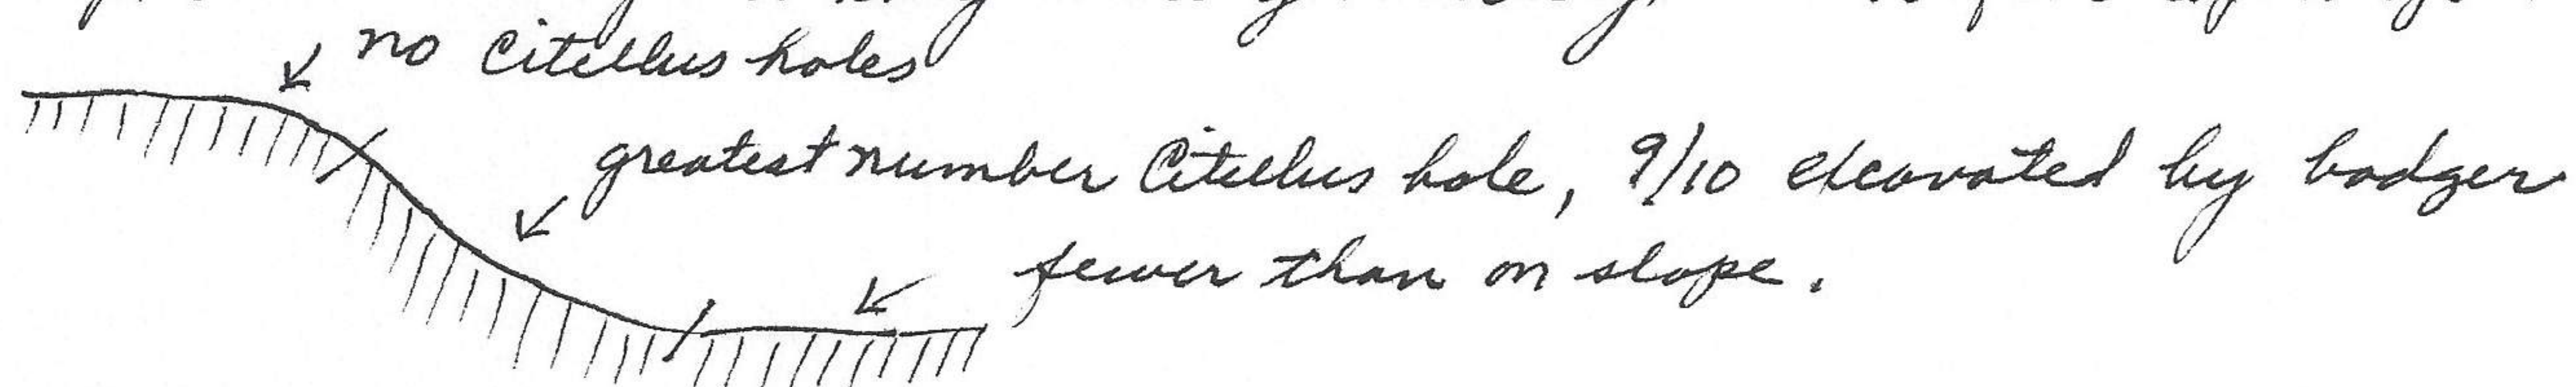 no Citellus holes
greatest number Citellus hole, 9/10 excavated by badger
fewer than on slope.